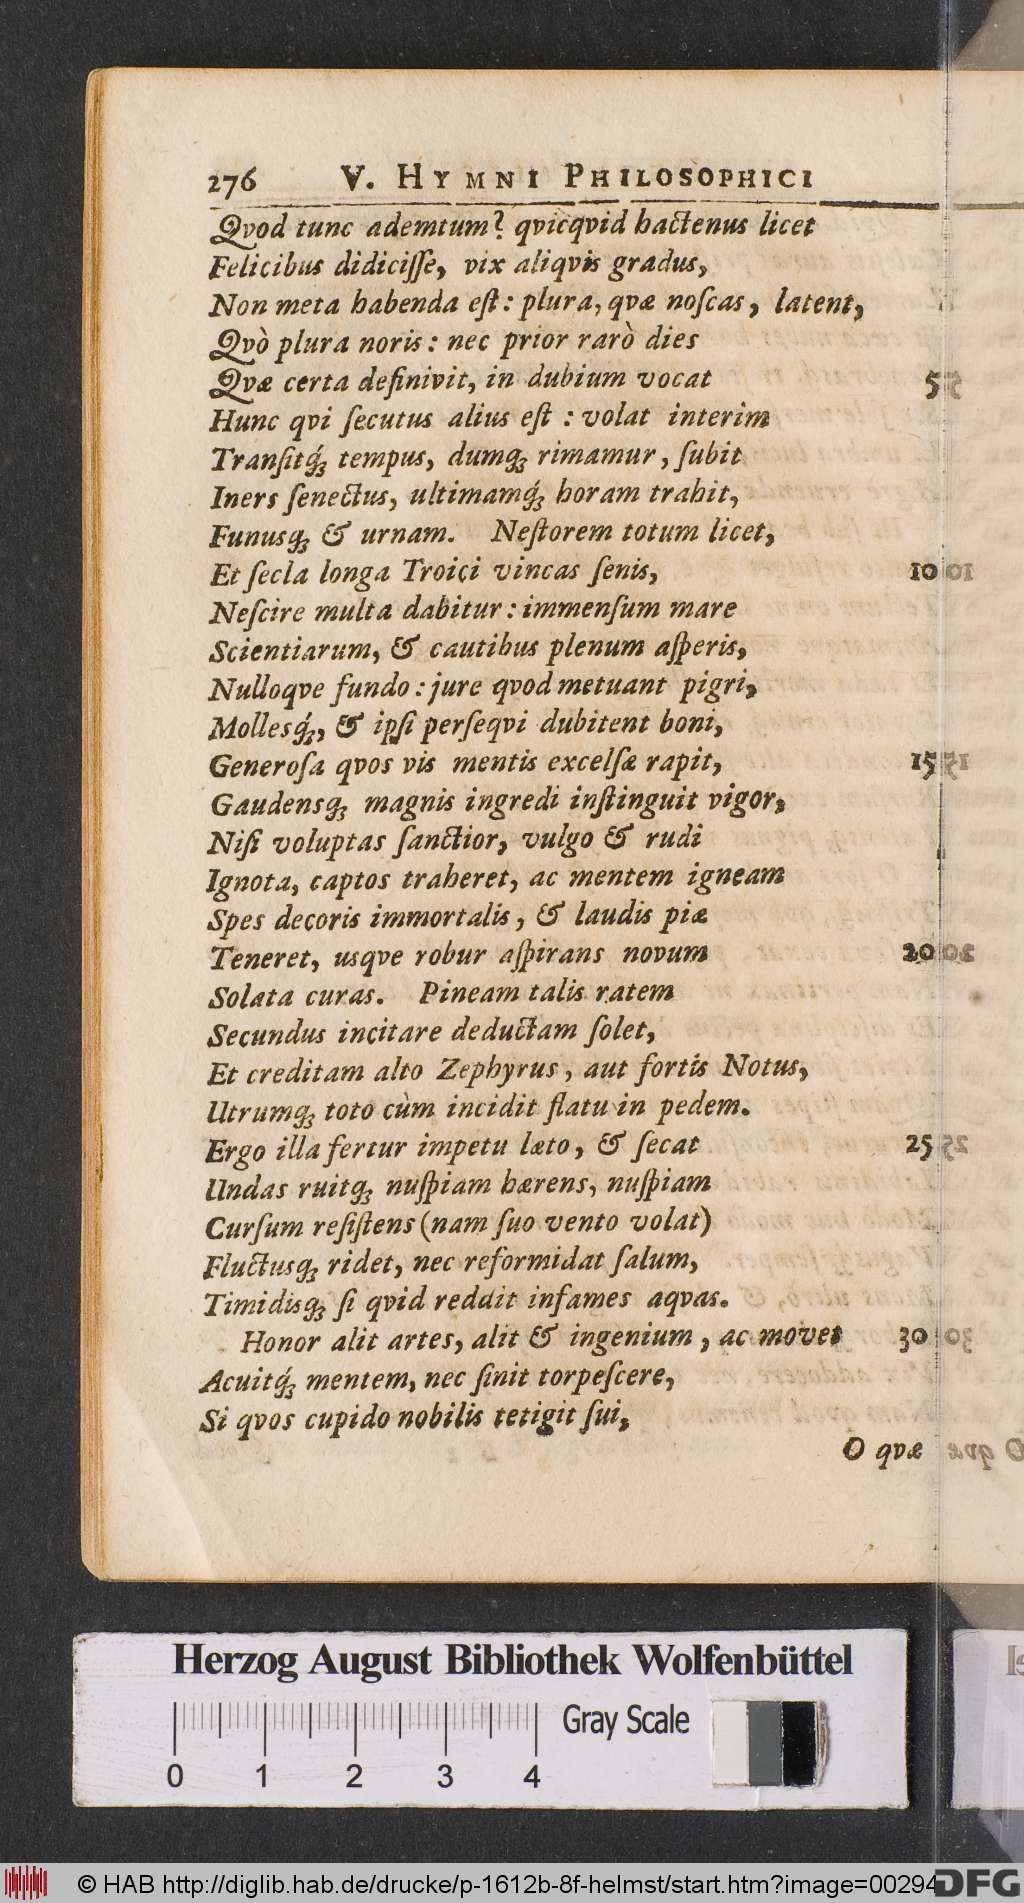 276 V. HYMNI PHILOSOPHICI
Qvod tunc ademtum? qvicqvid hactenus licet
Felicibus didiciſſe, vix aliqvis gradus,
Non meta habenda eſt: plura, qvæ noſcas, latent,
Qvò plura noris: nec prior rarò dies
Qvæ certa definivit, in dubium vocat 5
Hunc qvi ſecutus alius eſt: volat interim
Tranſitq́ꝫ tempus, dumqꝫ rimamur, ſubit
Iners ſenectus, ultimamq́ꝫ horam trahit,
Funusqꝫ & urnam. Neſtorem totum licet,
Et ſecla longa Troici vincas ſenis, 10
Neſcire multa dabitur: immenſum mare
Scientiarum, & cautibus plenum aſperis,
Nulloqve fundo: jure qvod metuant pigri,
Mollesq́ꝫ, & ipſi perſeqvi dubitent boni,
Generoſa qvos vis mentis excelſæ rapit, 15
Gaudensqꝫ magnis ingredi inſtinguit vigor,
Niſi voluptas ſanctior, vulgo & rudi
Ignota, captos traheret, ac mentem igneam
Spes decoris immortalis, & laudis piæ
Teneret, usqve robur aſpirans novum 20
Solata curas. Pineam talis ratem
Secundus incitare deductam ſolet,
Et creditam alto Zephyrus, aut fortis Notus,
Utrumqꝫ toto cùm incidit flatu in pedem.
Ergo illa fertur impetu læto, & ſecat 25
Undas ruitqꝫ nuſpiam hærens, nuſpiam
Curſum reſiſtens (nam ſuo vento volat)
Fluctusqꝫ ridet, nec reformidat ſalum,
Timidisqꝫ ſi qvid reddit infames aqvas.
Honor alit artes, alit & ingenium, ac movet 30
Acuitq́ꝫ mentem, nec ſinit torpeſcere,
Si qvos cupido nobilis tetigit ſui,
O qvæ
Herzog August Bibliothek Wolfenbüttel
Gray Scale
0 1 2 3 4
© HAB http://diglib.hab.de/drucke/p-1612b-8f-helmst/start.htm?image=00294
DFG